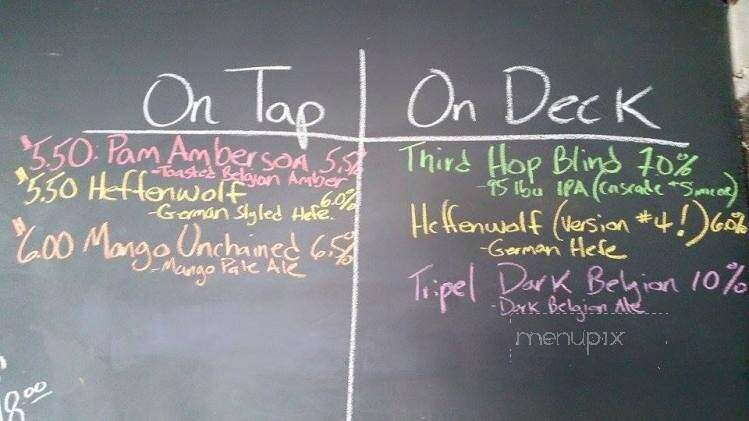 On Tap
$5.50 Pam Amberson 5.5%
-Toasted Belgian Amber
$5.50 Heffenwolf 6.0%
-German Styled Hefe.
$6.00 Mango Unchained 6.5%
-Mango Pale Ale
8.00
On Deck
Third Hop Blind 7.0%
-95 Ibu IPA (Cascade + Simcoe)
Heffenwolf (version #4!) 6.0%
-German Hefe
Tripel Dark Belgian 10%
-Dark Belgian Ale
menupix